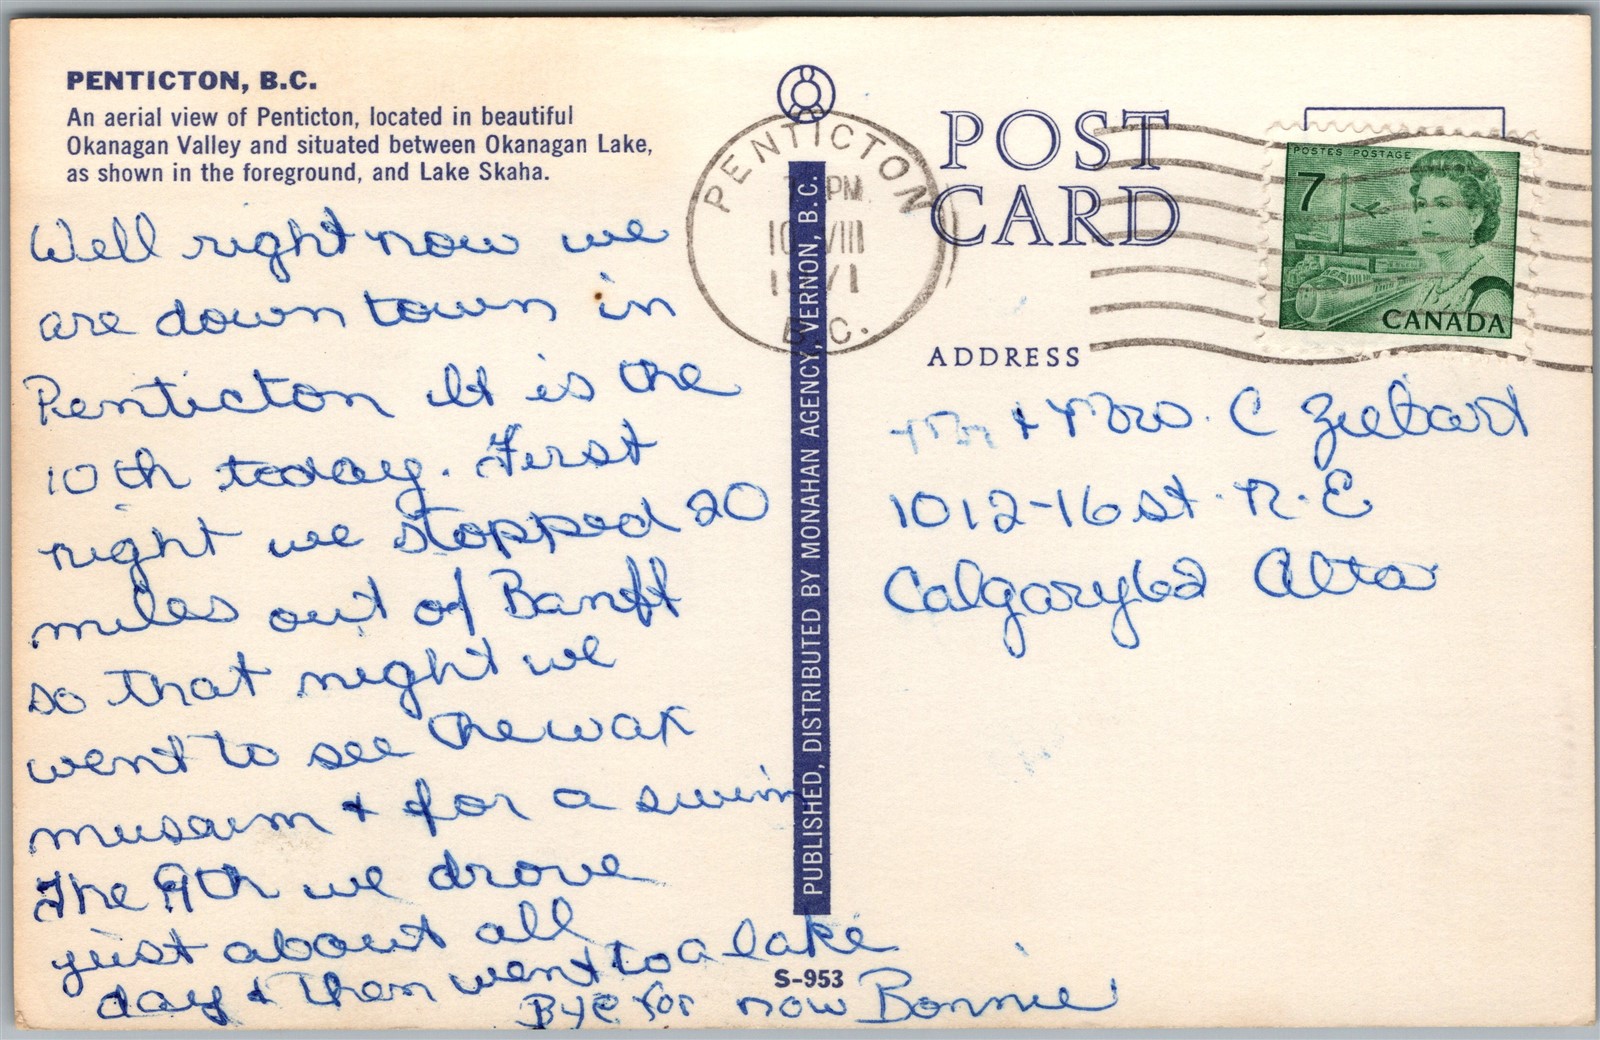 PENTICTON, B.C.
An aerial view of Penticton, located in beautiful
Okanagan Valley and situated between Okanagan Lake,
as shown in the foreground, and Lake Skaha.
Well right now we
are down town in
Penticton It is the
10th today. First
night we stopped 20
miles out of Banff
so that night we
went to see the wax
museum + for a swim
The 9th we drove
just about all
day + then went to a lake
Bye for now Bonnie
PUBLISHED, DISTRIBUTED BY MONAHAN AGENCY, VERNON, B.C.
S-953
PENTICTON
PM
10 VIII
B.C.
POST
CARD
ADDRESS
POSTES POSTAGE
7
CANADA
Mr + Mrs. C Ziebart
1012-16 st. N.E
Calgary 62 Alta